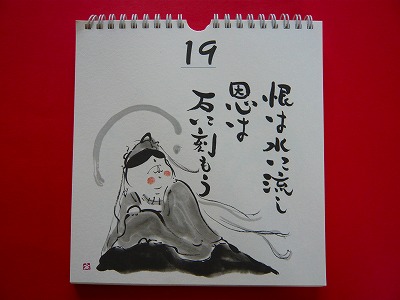 19
恨は水に流し
恩は
石に刻もう